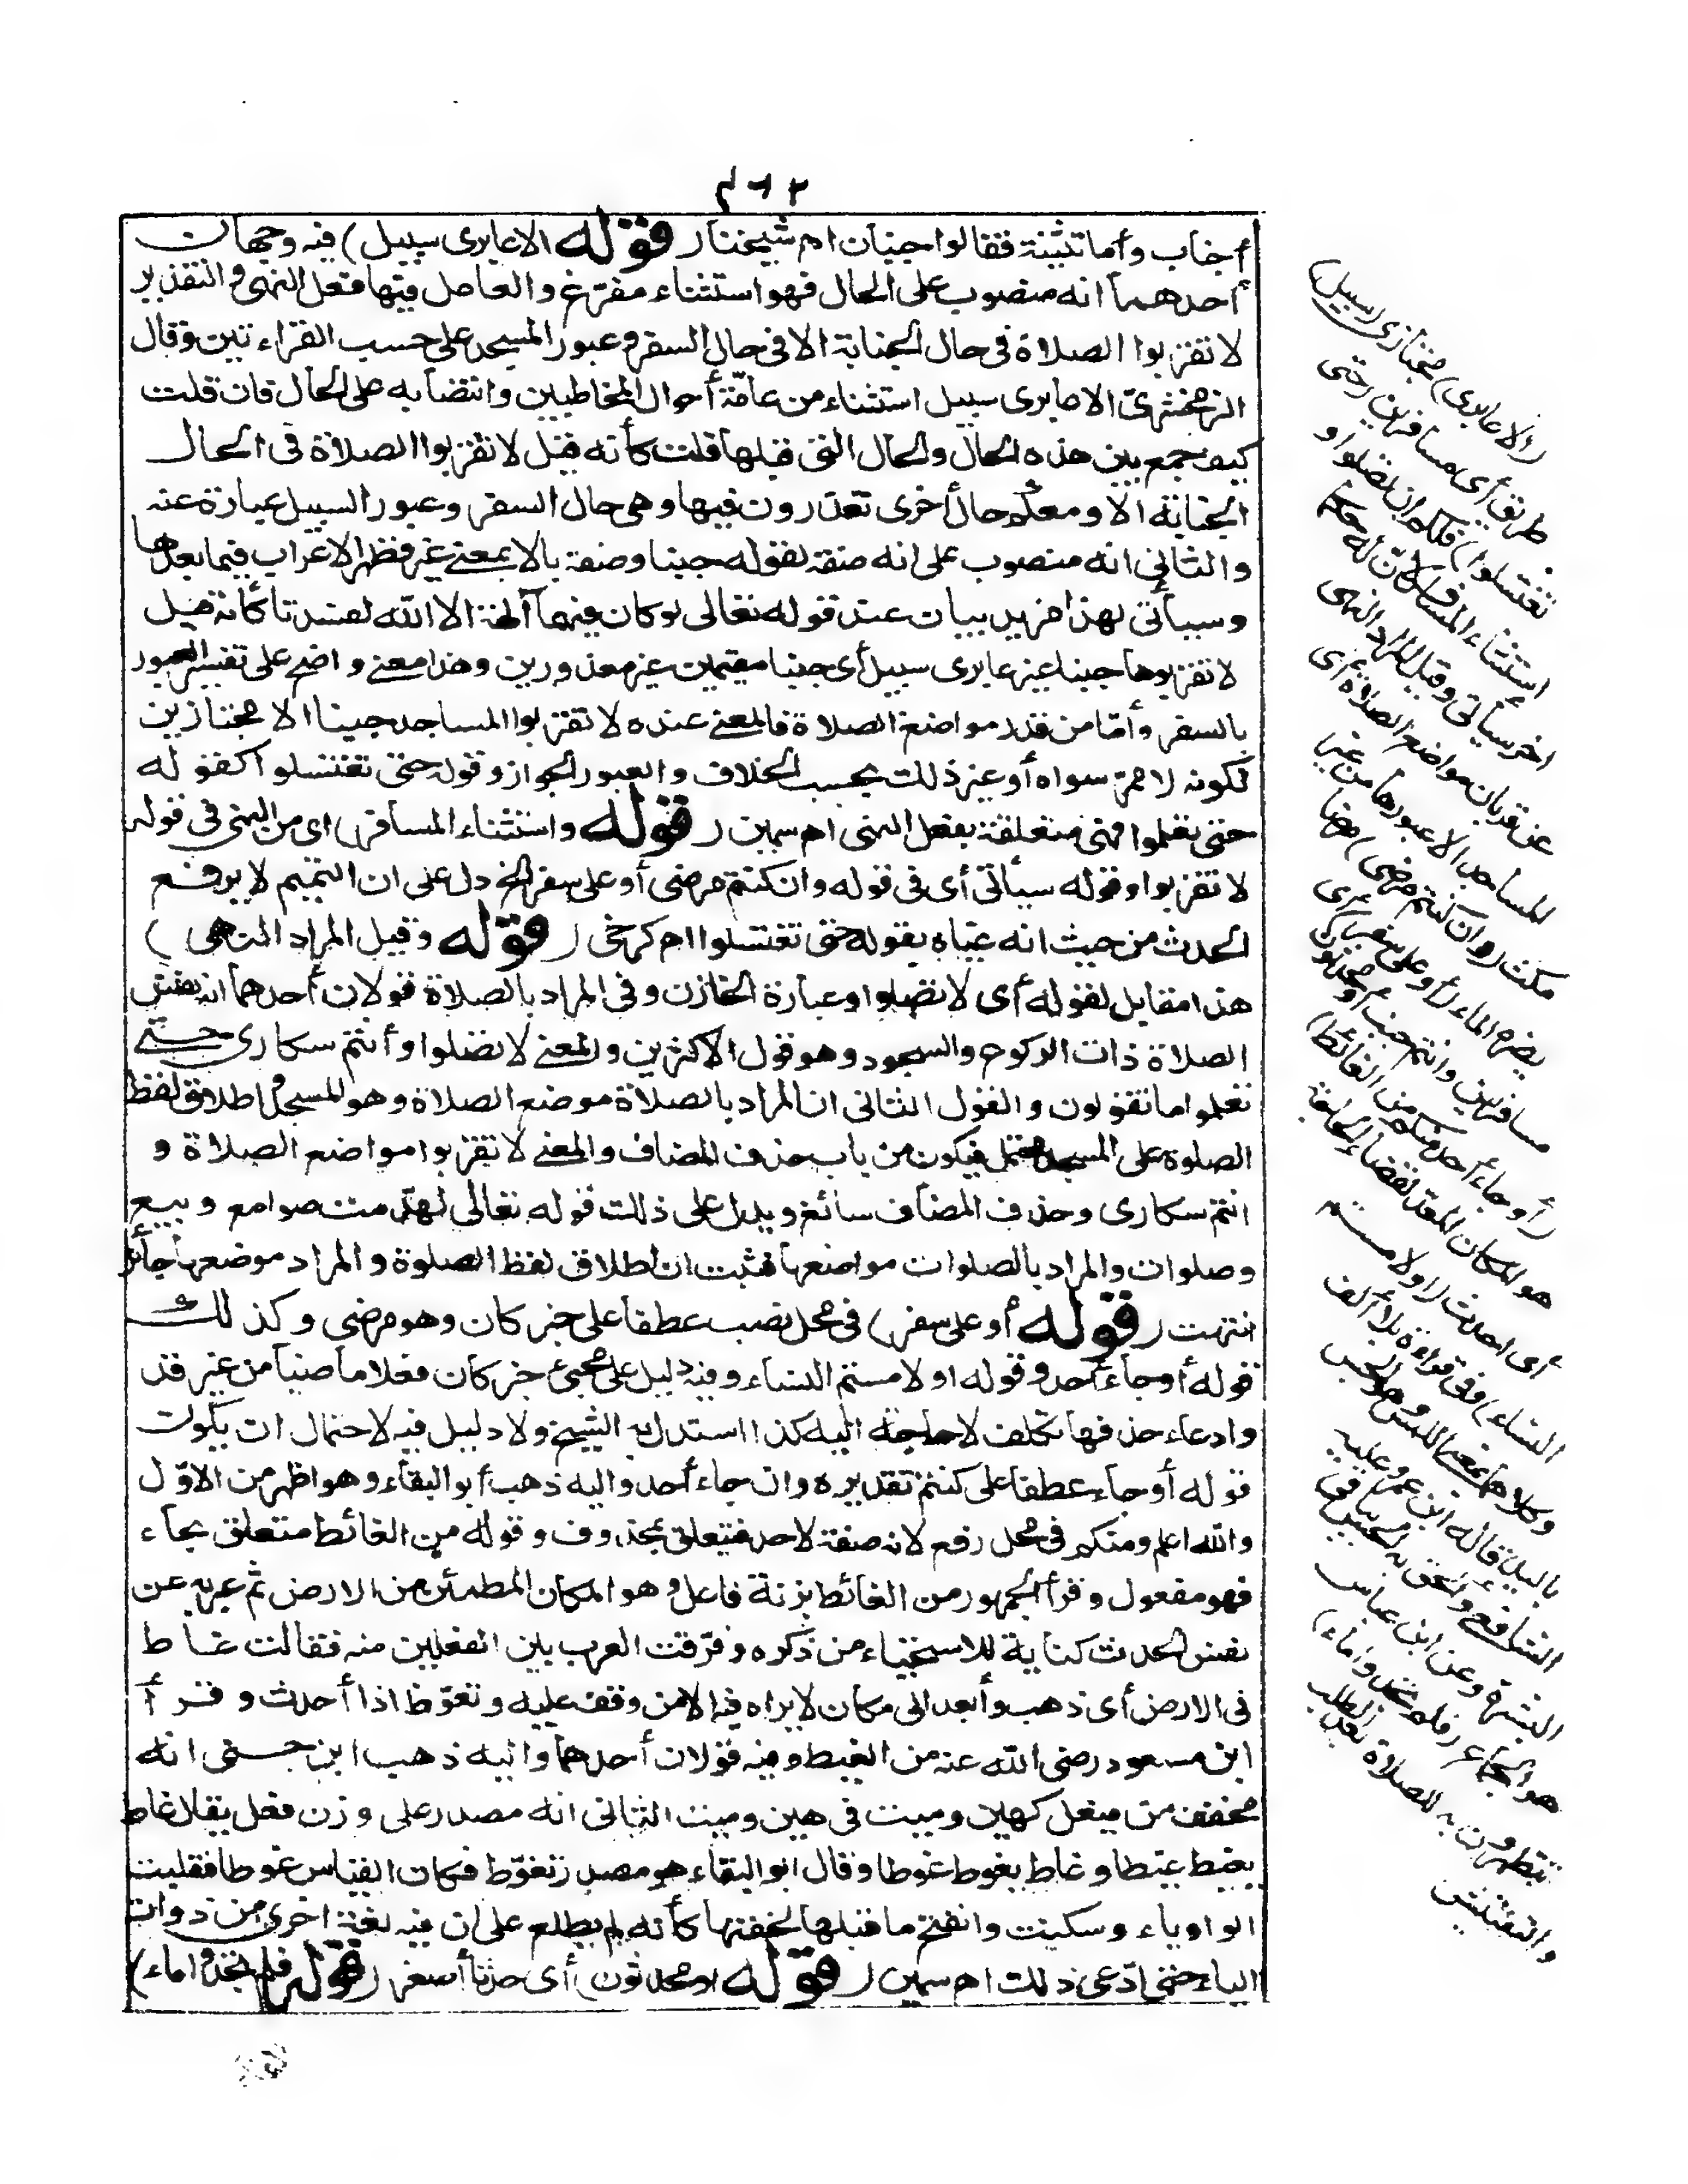 ٤٦٢
أجناب وأما تثنيته فقالوا جنبان اه شيخنا ( قوله الا عابرى سبيل ) فيه وجهان
أحدهما انه منصوب على الحال فهو استثناء مفرّغ والعامل فيها فعل النهى والتقدير
لا تقربوا الصلاة فى حال الجنابة الا فى حال السفر و عبور المسجد على حسب القراءتين وقال
الزمخشرىّ الا عابرى سبيل استثناء من عامّة أحوال المخاطبين وانتصابه على الحال فان قلت
كيف جمع بين هذه الحال والحال التى قبلها قلت كأنه قيل لا تقربوا الصلاة فى الحال
الجنابة الا ومعكم حال أخرى تعذرون فيها وهى حال السفر وعبور السبيل عبارة عنه
والثانى انه منصوب على انه صفة لقوله جنبا وصفة بالا بمعنى غير فظهر الاعراب فيما بعدها
وسيأتى لهذا مزيد بيان عند قوله تعالى لو كان فيهما آلهة الا الله لفسدتا كأنه قيل
لا تقربوها جنبا غير عابرى سبيل أى جنبا مقيمين غير معذورين وهذا معنى واضح على تفسير العبور
بالسفر وأمّا من قدر مواضع الصلاة فالمعنى عنده لا تقربوا المساجد جنبا الا مجتازين
لكونه لا ممرّ سواه أو غير ذلك بحسب الخلاف والعبور الجواز وقوله حتى تغتسلوا كقوله
حتى تعلموا فهى متعلقة بفعل النهى اه سمين ( قوله واستثناء المسافر ) اى من النهى فى قوله
لا تقربوا وقوله سيأتى أى فى قوله وان كنتم مرضى أو على سفر الخ دل على ان التيمم لا يرفع
الحدث من حيث انه غيّاه بقوله حتى تغتسلوا اه كرخى ( قوله وقيل المراد النهى )
هذا مقابل لقوله أى لا تصلوا وعبارة الخازن وفى المراد بالصلاة قولان أحدهما انه نفس
الصلاة ذات الركوع والسجود وهو قول الأكثرين والمعنى لا تصلوا وأنتم سكارى حتى
تعلموا ما تقولون والقول الثانى ان المراد بالصلاة موضع الصلاة وهو المسجد و اطلاق لفظ
الصلوة على المسجد محتمل فيكون من باب حذف المضاف والمعنى لا تقربوا مواضع الصلاة و
انتم سكارى وحذف المضاف سائغ ويدل على ذلك قوله تعالى لهدّمت صوامع وبيع
وصلوات والمراد بالصلوات مواضعها فثبت ان اطلاق لفظ الصلوة والمراد موضعها جائز
انتهت ( قوله أو على سفر ) فى محل نصب عطفا على خبر كان وهو مرضى وكذلك
قوله أو جاء أحد و قوله او لامستم النساء وفيه دليل على مجىء خبر كان فعلا ماضيا من غير قد
وادعاء حذفها تكلف لا حاجة اليه كذا استدل به الشيخ ولا دليل فيه لاحتمال ان يكون
قوله أو جاء عطفا على كنتم تقديره وان جاء أحد واليه ذهب أبو البقاء وهو اظهر من الاوّل
والله اعلم ومنكم فى محل رفع لانه صفة لاحد فيتعلق بمحذوف وقوله من الغائط متعلق بجاء
فهو مفعول وقرأ الجمهور من الغائط بزنة فاعل وهو المكان المطمئن من الارض ثم عبر به عن
نفس الحدث كناية للاستحياء من ذكره وفرّقت العرب بين الفعلين منه فقالت غاط
فى الارض أى ذهب وأبعد الى مكان لا يراه فيه الا من وقف عليه وتغوّط اذا أحدث وقرأ
ابن مسعود رضى الله عنه من الغيط وفيه قولان أحدهما واليه ذهب ابن جنى انه
مخفف من فيعل كهين وميت فى هين وميت الثانى انه مصدر على وزن فعل يقال غاط
يغيط غيطا وغاط يغوط غوطا وقال ابو البقاء هو مصدر تغوّط فكان القياس غوطا فقلبت
الواو ياء وسكنت وانفتح ما قبلها لخفتها كأنه لم يطلع على ان فيه لغة اخرى من ذوات
الياء حتى ادّعى ذلك اه سمين ( قوله او محدثون ) أى حدثا أصغر ( قوله فلم تجدوا ماء )
( الا عابرى ) مجتازى ( سبيل )
طريق أى مسافرين ( حتى
تغتسلوا ) فلكم ان تصلوا و
استثناء المسافر لان له حكما
آخر سيأتى وقيل المراد النهى
عن قربان مواضع الصلاة أى
المساجد الا عبورها من غير
مكث ( وان كنتم مرضى ) مرضا
يضره الماء ( أو على سفر ) أى
مسافرين وانتم جنب أو محدثون
( أو جاء أحد منكم من الغائط )
هو المكان المعدّ لقضاء الحاجة
أى احدث ( او لامستم
النساء ) وفى قراءة بلا ألف
وكلاهما بمعنى اللمس وهو الجس
باليد قاله ابن عمر وعليه
الشافعى وألحق به الجس بباقى
البشرة وعن ابن عباس
هو الجماع ( فلم تجدوا ماء )
تتطهرون به للصلاة بعد الطلب
والتفتيش